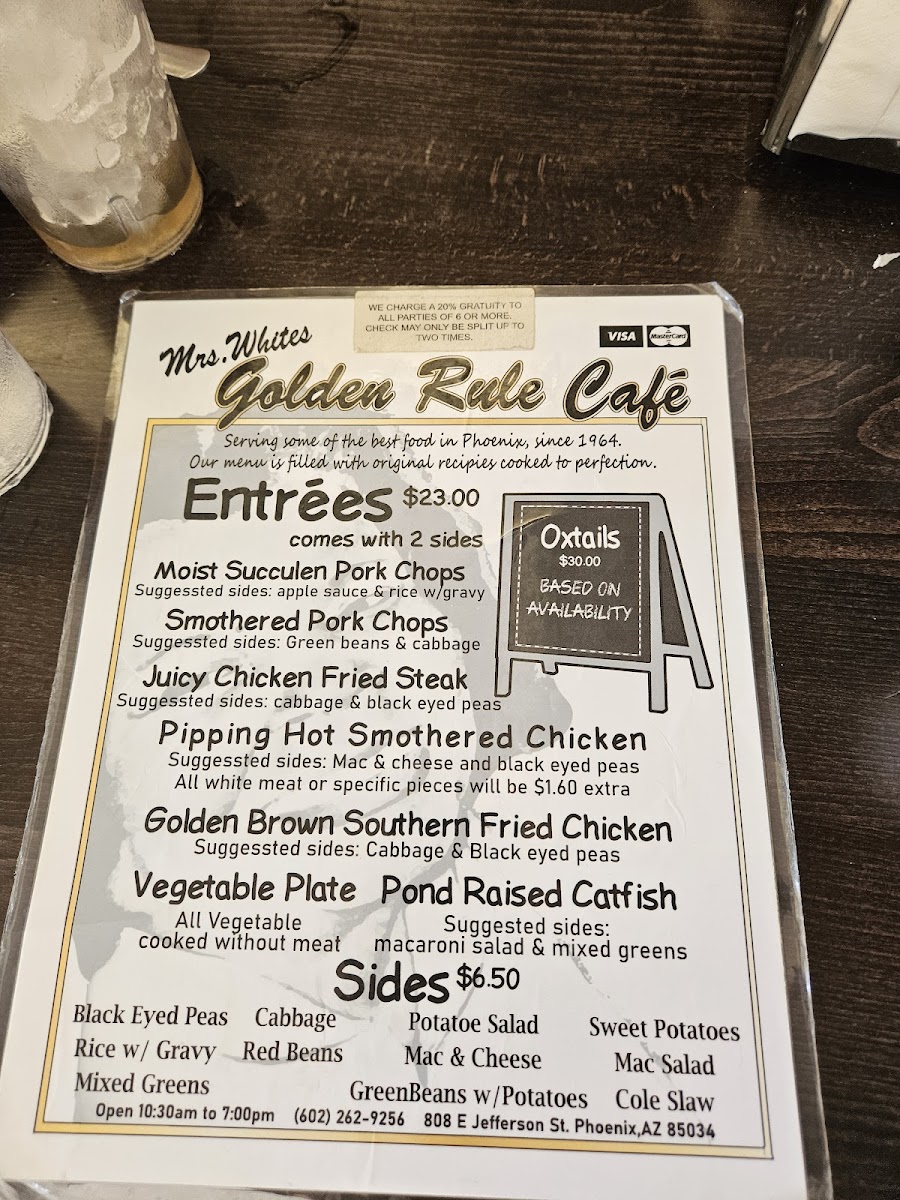 WE CHARGE A 20% GRATUITY TO
ALL PARTIES OF 6 OR MORE.
CHECK MAY ONLY BE SPLIT UP TO
TWO TIMES.
VISA MasterCard
Mrs. Whites
Golden Rule Café
Serving some of the best food in Phoenix, since 1964.
Our menu is filled with original recipies cooked to perfection.
Entrées $23.00
comes with 2 sides
Oxtails
$30.00
BASED ON
AVAILABILITY
Moist Succulen Pork Chops
Suggessted sides: apple sauce & rice w/gravy
Smothered Pork Chops
Suggessted sides: Green beans & cabbage
Juicy Chicken Fried Steak
Suggessted sides: cabbage & black eyed peas
Pipping Hot Smothered Chicken
Suggessted sides: Mac & cheese and black eyed peas
All white meat or specific pieces will be $1.60 extra
Golden Brown Southern Fried Chicken
Suggessted sides: Cabbage & Black eyed peas
Vegetable Plate
All Vegetable
cooked without meat
Pond Raised Catfish
Suggested sides:
macaroni salad & mixed greens
Sides $6.50
Black Eyed Peas Cabbage Potatoe Salad Sweet Potatoes
Rice w/ Gravy Red Beans Mac & Cheese Mac Salad
Mixed Greens GreenBeans w/Potatoes Cole Slaw
Open 10:30am to 7:00pm (602) 262-9256 808 E Jefferson St. Phoenix,AZ 85034